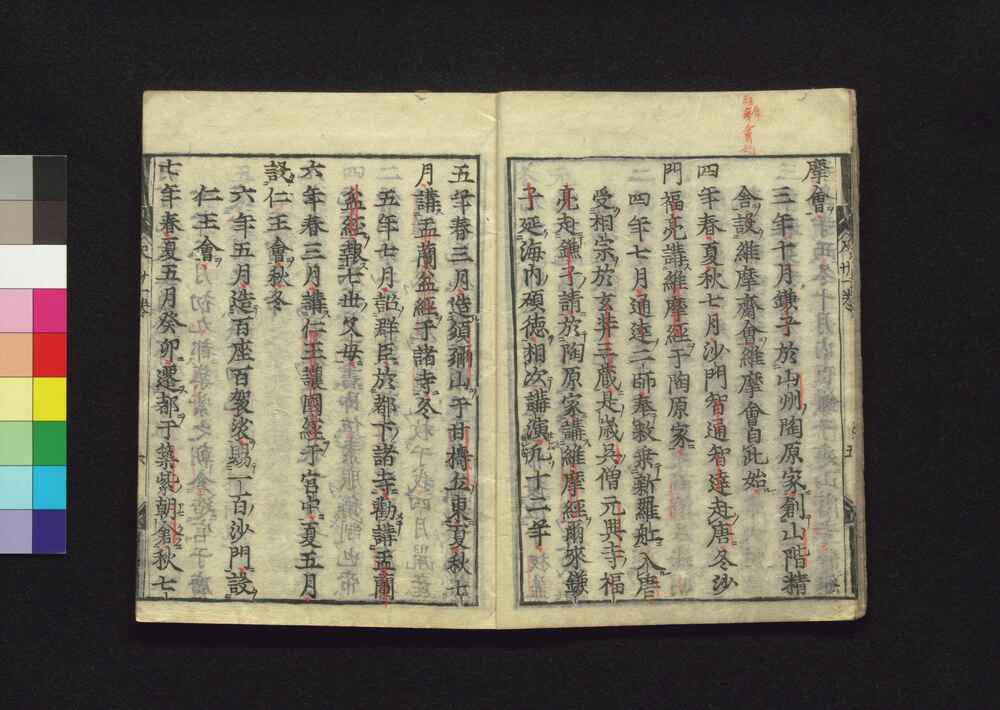 摩會
三年十月鎌子於山州陶原家創山階精
舎設維摩齋會維摩會自此始
四年春夏秋七月沙門智通智達赴唐冬沙
門福亮講維摩經于陶原家
四年七月通達二師奉敕乗新羅舡入唐
受相宗於玄弉三藏是歳呉僧元興寺福
亮赴鎌子請於陶原家講維摩經爾來鎌
子延海内碩德相次講演凢十二年
五年春三月造須彌山于甘梼丘東夏秋七
月講盂蘭盆經于諸寺冬
五年七月詔群臣於都下諸寺勸講盂蘭
盆經報七世父母
六年春三月講仁王護國經于宮中夏五月
設仁王會秋冬
六年五月造百座百袈裟賜一百沙門設
仁王會
七年春夏五月癸卯遷都于築紫朝倉秋七